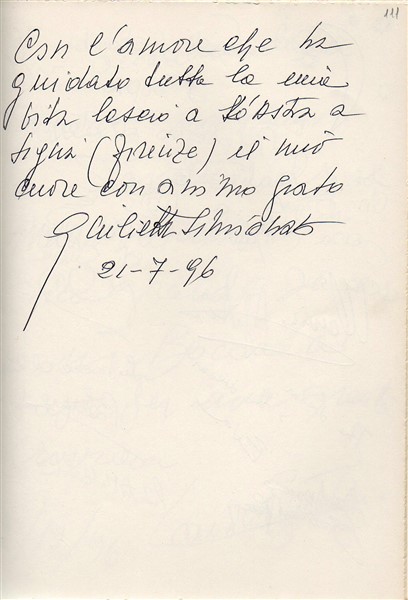 111
Con l'amore che ha
guidato tutta la mia
vita lascio a Lastra a
Signa (Firenze) il mio
cuore con animo grato
Giulietta Simionato
21-7-96